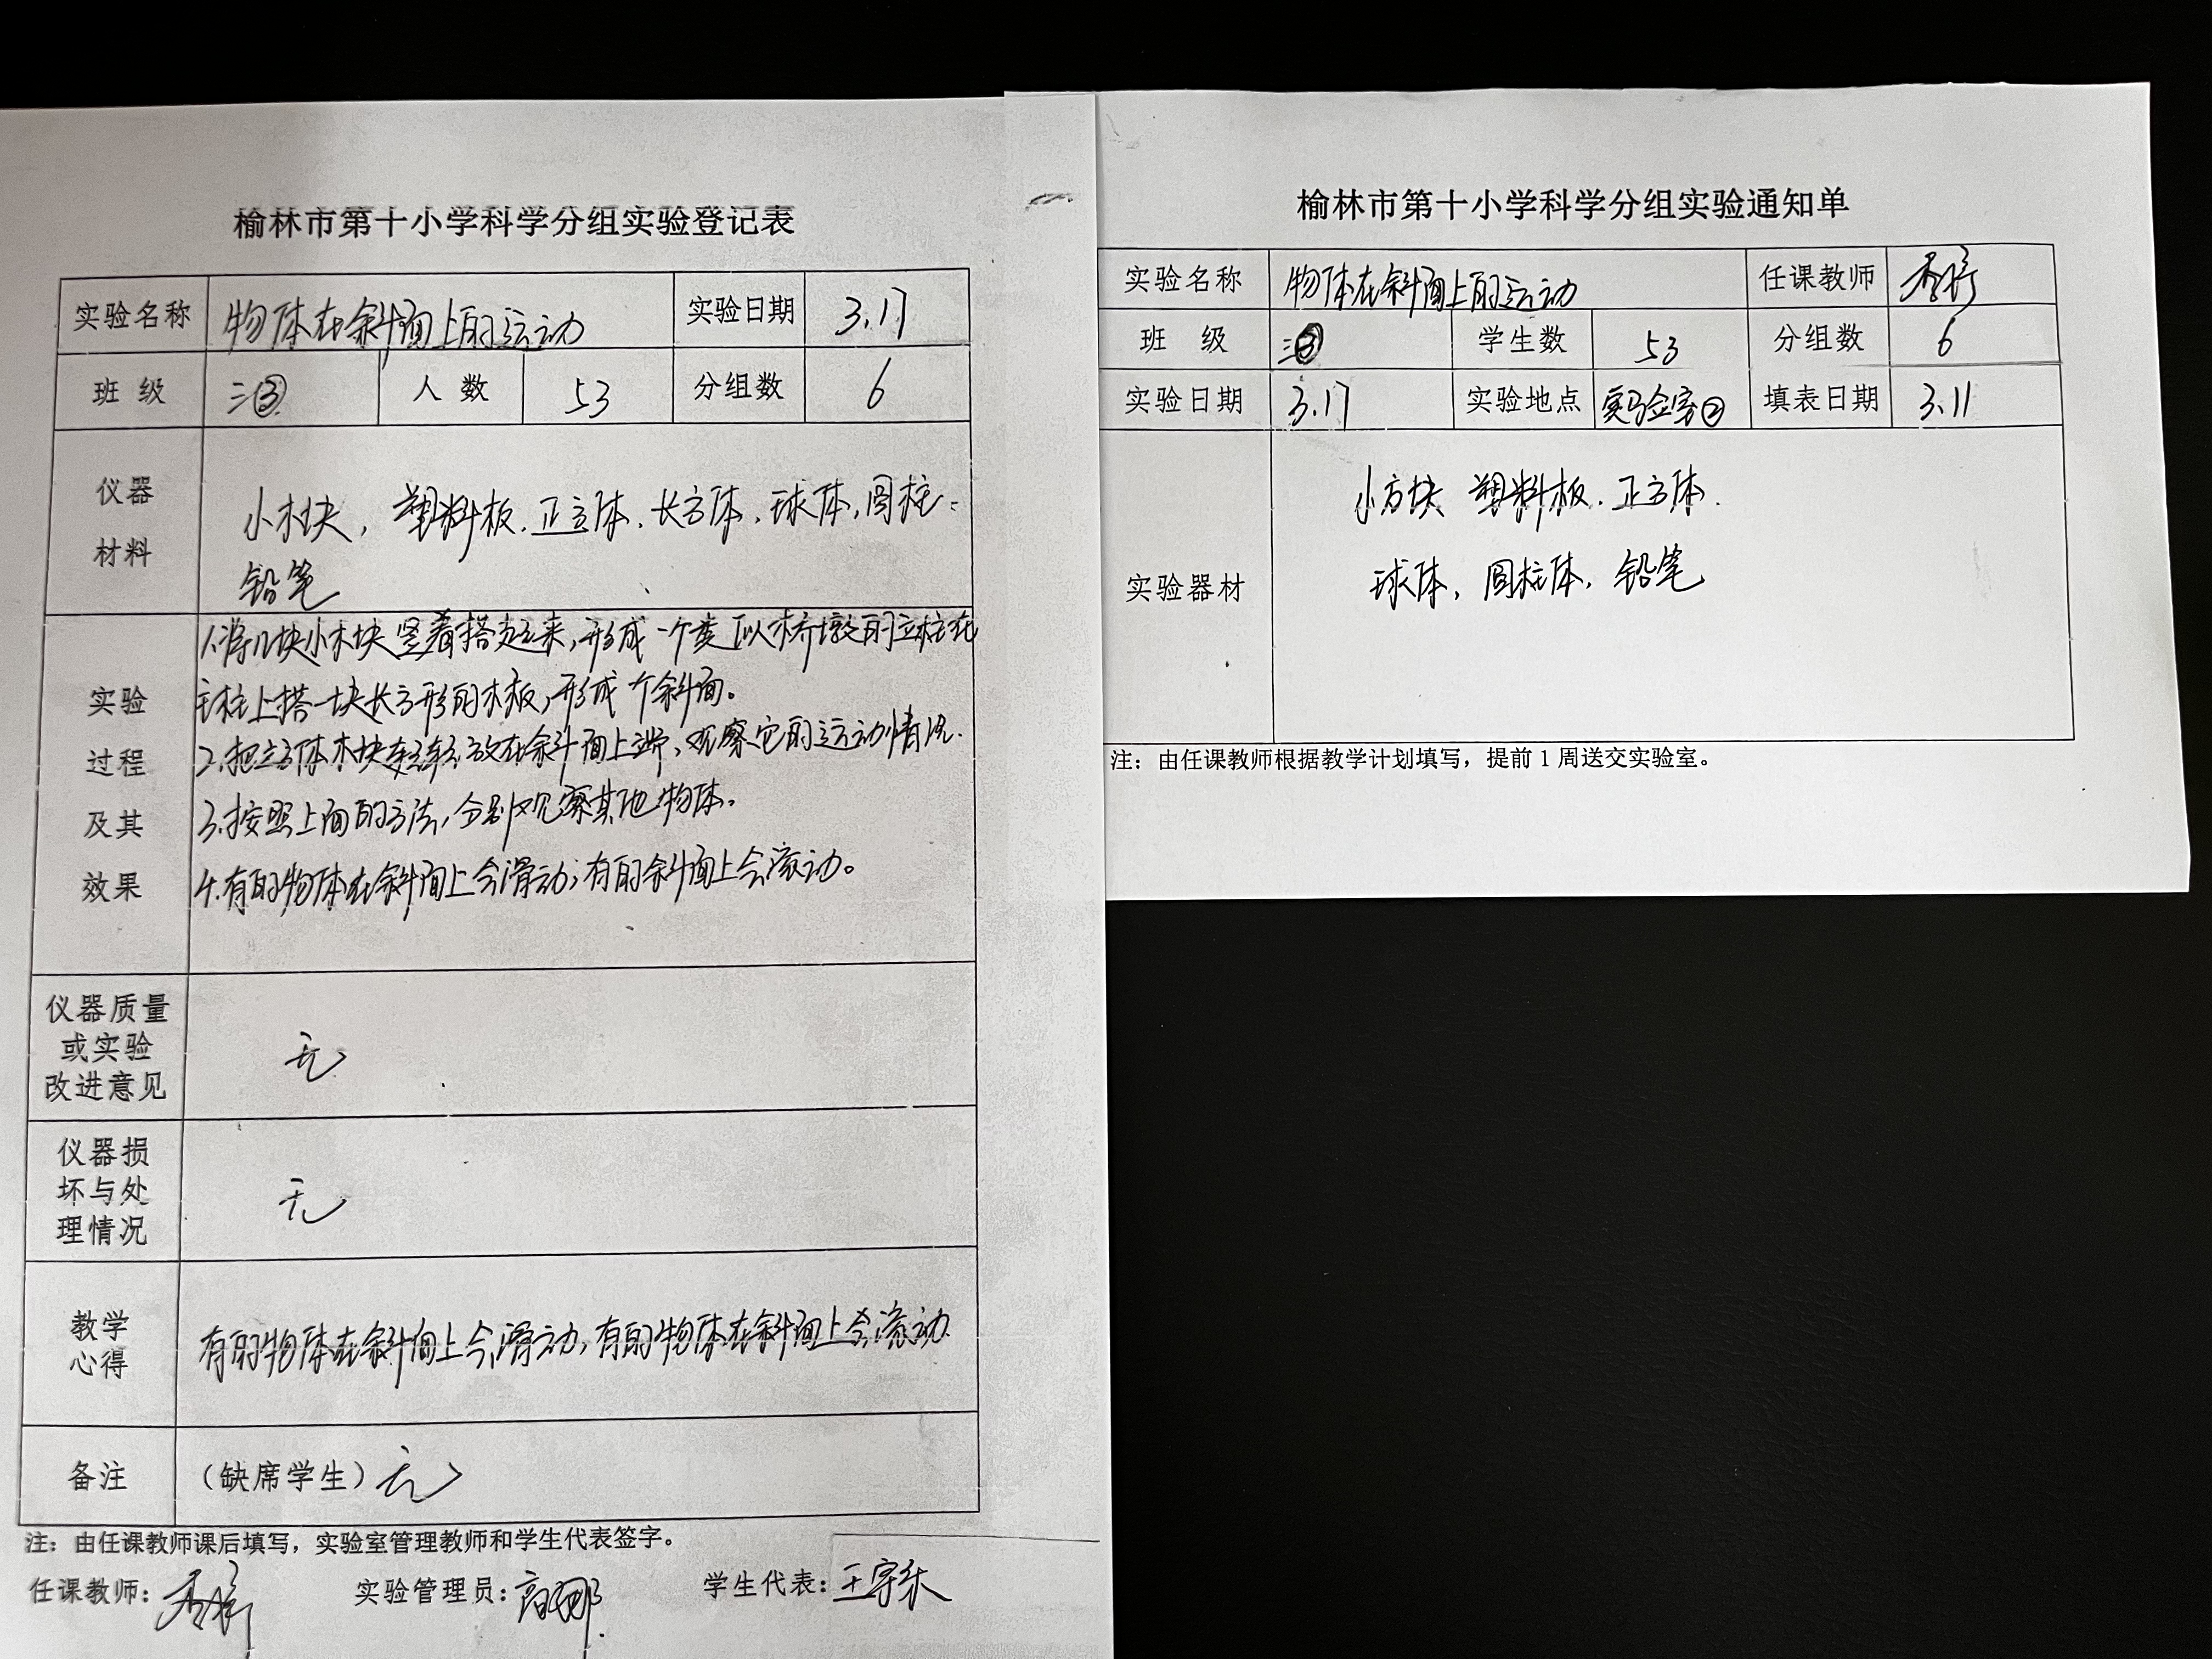 榆林市第十小学科学分组实验登记表
实验名称 物体在斜面上的运动 实验日期 3.17
班 级 三③ 人 数 53 分组数 6
仪器
材料
小木块，塑料板．正立体．长方体．球体，圆柱．
铅笔
实验
过程
及其
效果
1.将几块小木块竖着搭起来，形成一个类似桥墩的立柱在
主柱上搭一块长方形的木板，形成个斜面。
2.把立方体木块轻轻放在斜面上端，观察它的运动情况．
3.按照上面的方法，分别观察其他物体。
4.有的物体在斜面上会滑动；有的斜面上会滚动。
仪器质量
或实验
改进意见
无
仪器损
坏与处
理情况
无
教学
心得
有的物体在斜面上会滑动，有的物体在斜面上会滚动．
备注 （缺席学生）无
注：由任课教师课后填写，实验室管理教师和学生代表签字。
任课教师： 实验管理员：高娜 学生代表：王宇
榆林市第十小学科学分组实验通知单
实验名称 物体在斜面上的运动 任课教师
班 级 三③ 学生数 53 分组数 6
实验日期 3.17 实验地点 实验室② 填表日期 3.11
实验器材
小方块 塑料板．正方体．
球体，圆柱体，铅笔
注：由任课教师根据教学计划填写，提前1周送交实验室。